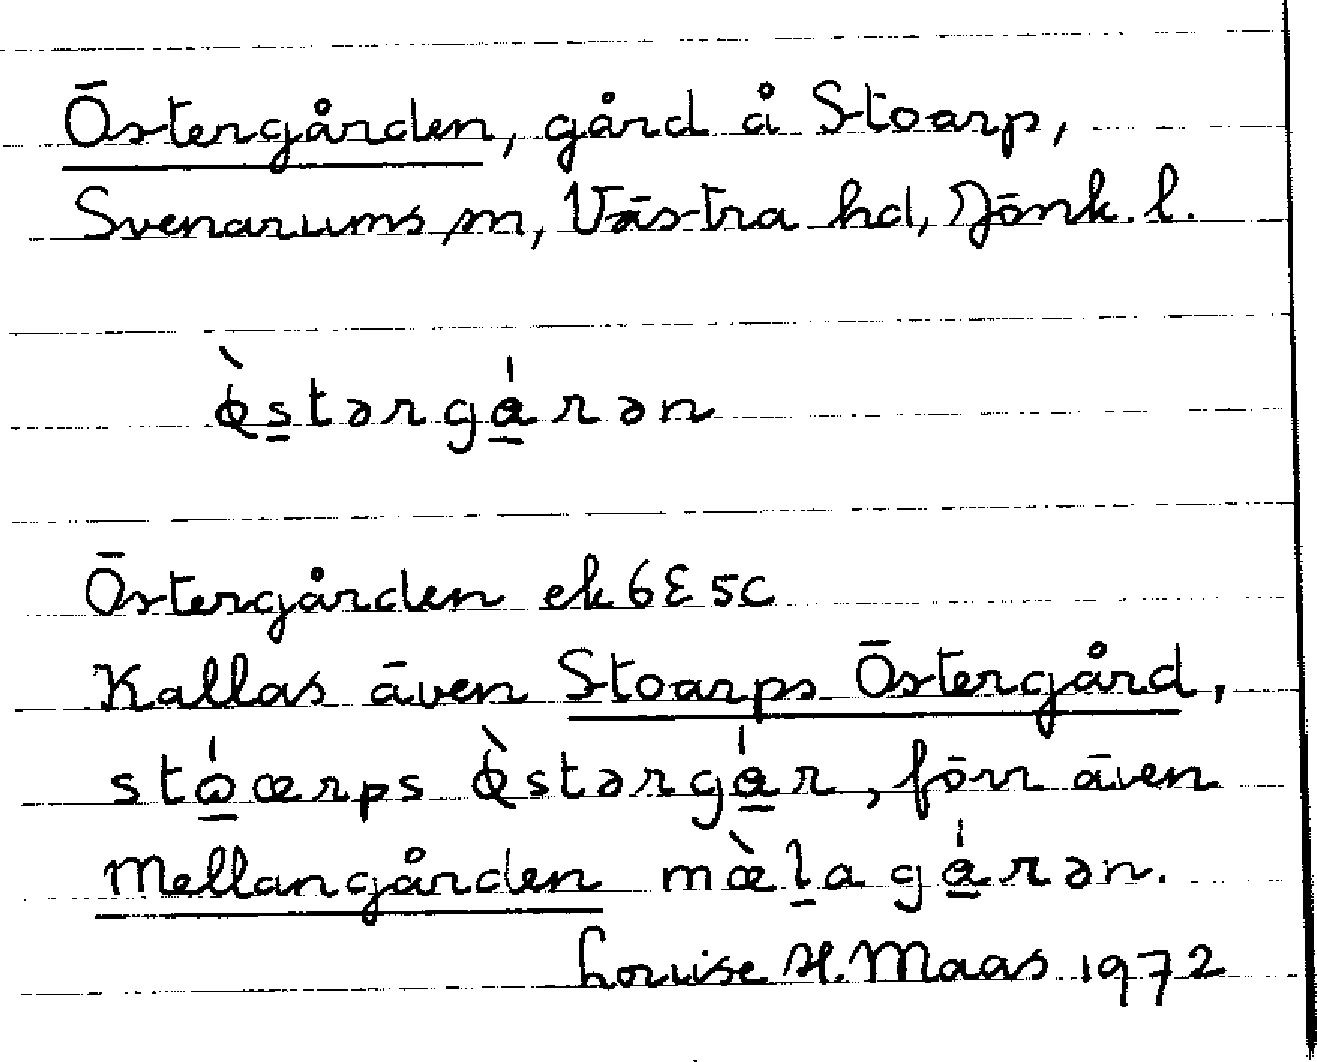 Östergården, gård å Stoarp,
Svenarums sn, Västra hd, Jönk. l.
ø̀s̱tərgá̱rən
Östergården ek 6E 5c
Kallas även Stoarps Östergård,
stó̱ærps ø̀stərgá̱r, förr även
Mellangården mæ̀ḻagá̱rən.
Louise H. Maas 1972